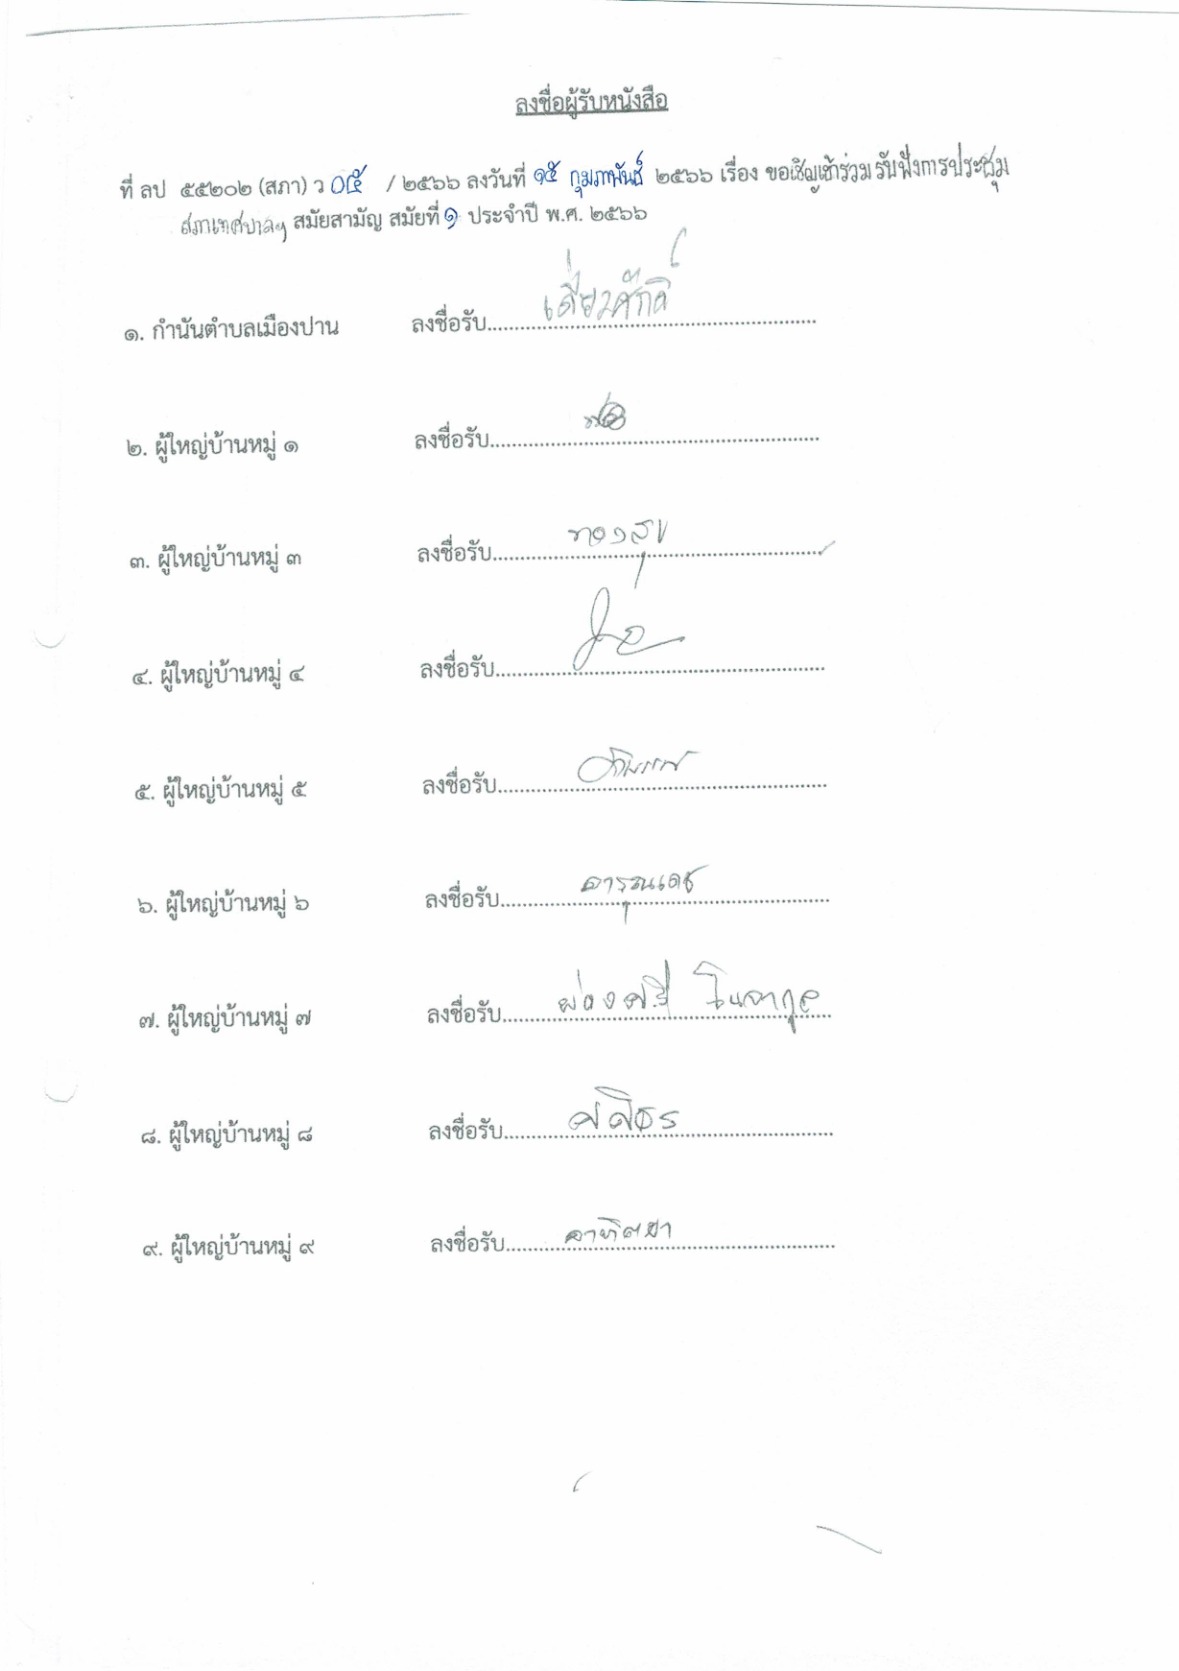 ลงชื่อผู้รับหนังสือ
ที่ ลป ๕๕๒๐๒ (สภา) ว ๐๕ / ๒๕๖๖ ลงวันที่ ๑๕ กุมภาพันธ์ ๒๕๖๖ เรื่อง ขอเชิญเข้าร่วมรับฟังการประชุม
สภาเทศบาลฯ สมัยสามัญ สมัยที่ ๑ ประจำปี พ.ศ. ๒๕๖๖
๑. กำนันตำบลเมืองปาน ลงชื่อรับ
๒. ผู้ใหญ่บ้านหมู่ ๑ ลงชื่อรับ
๓. ผู้ใหญ่บ้านหมู่ ๓ ลงชื่อรับ ทองสุข
๔. ผู้ใหญ่บ้านหมู่ ๔ ลงชื่อรับ
๕. ผู้ใหญ่บ้านหมู่ ๕ ลงชื่อรับ
๖. ผู้ใหญ่บ้านหมู่ ๖ ลงชื่อรับ
๗. ผู้ใหญ่บ้านหมู่ ๗ ลงชื่อรับ ผ่องศรี
๘. ผู้ใหญ่บ้านหมู่ ๘ ลงชื่อรับ ศศิธร
๙. ผู้ใหญ่บ้านหมู่ ๙ ลงชื่อรับ